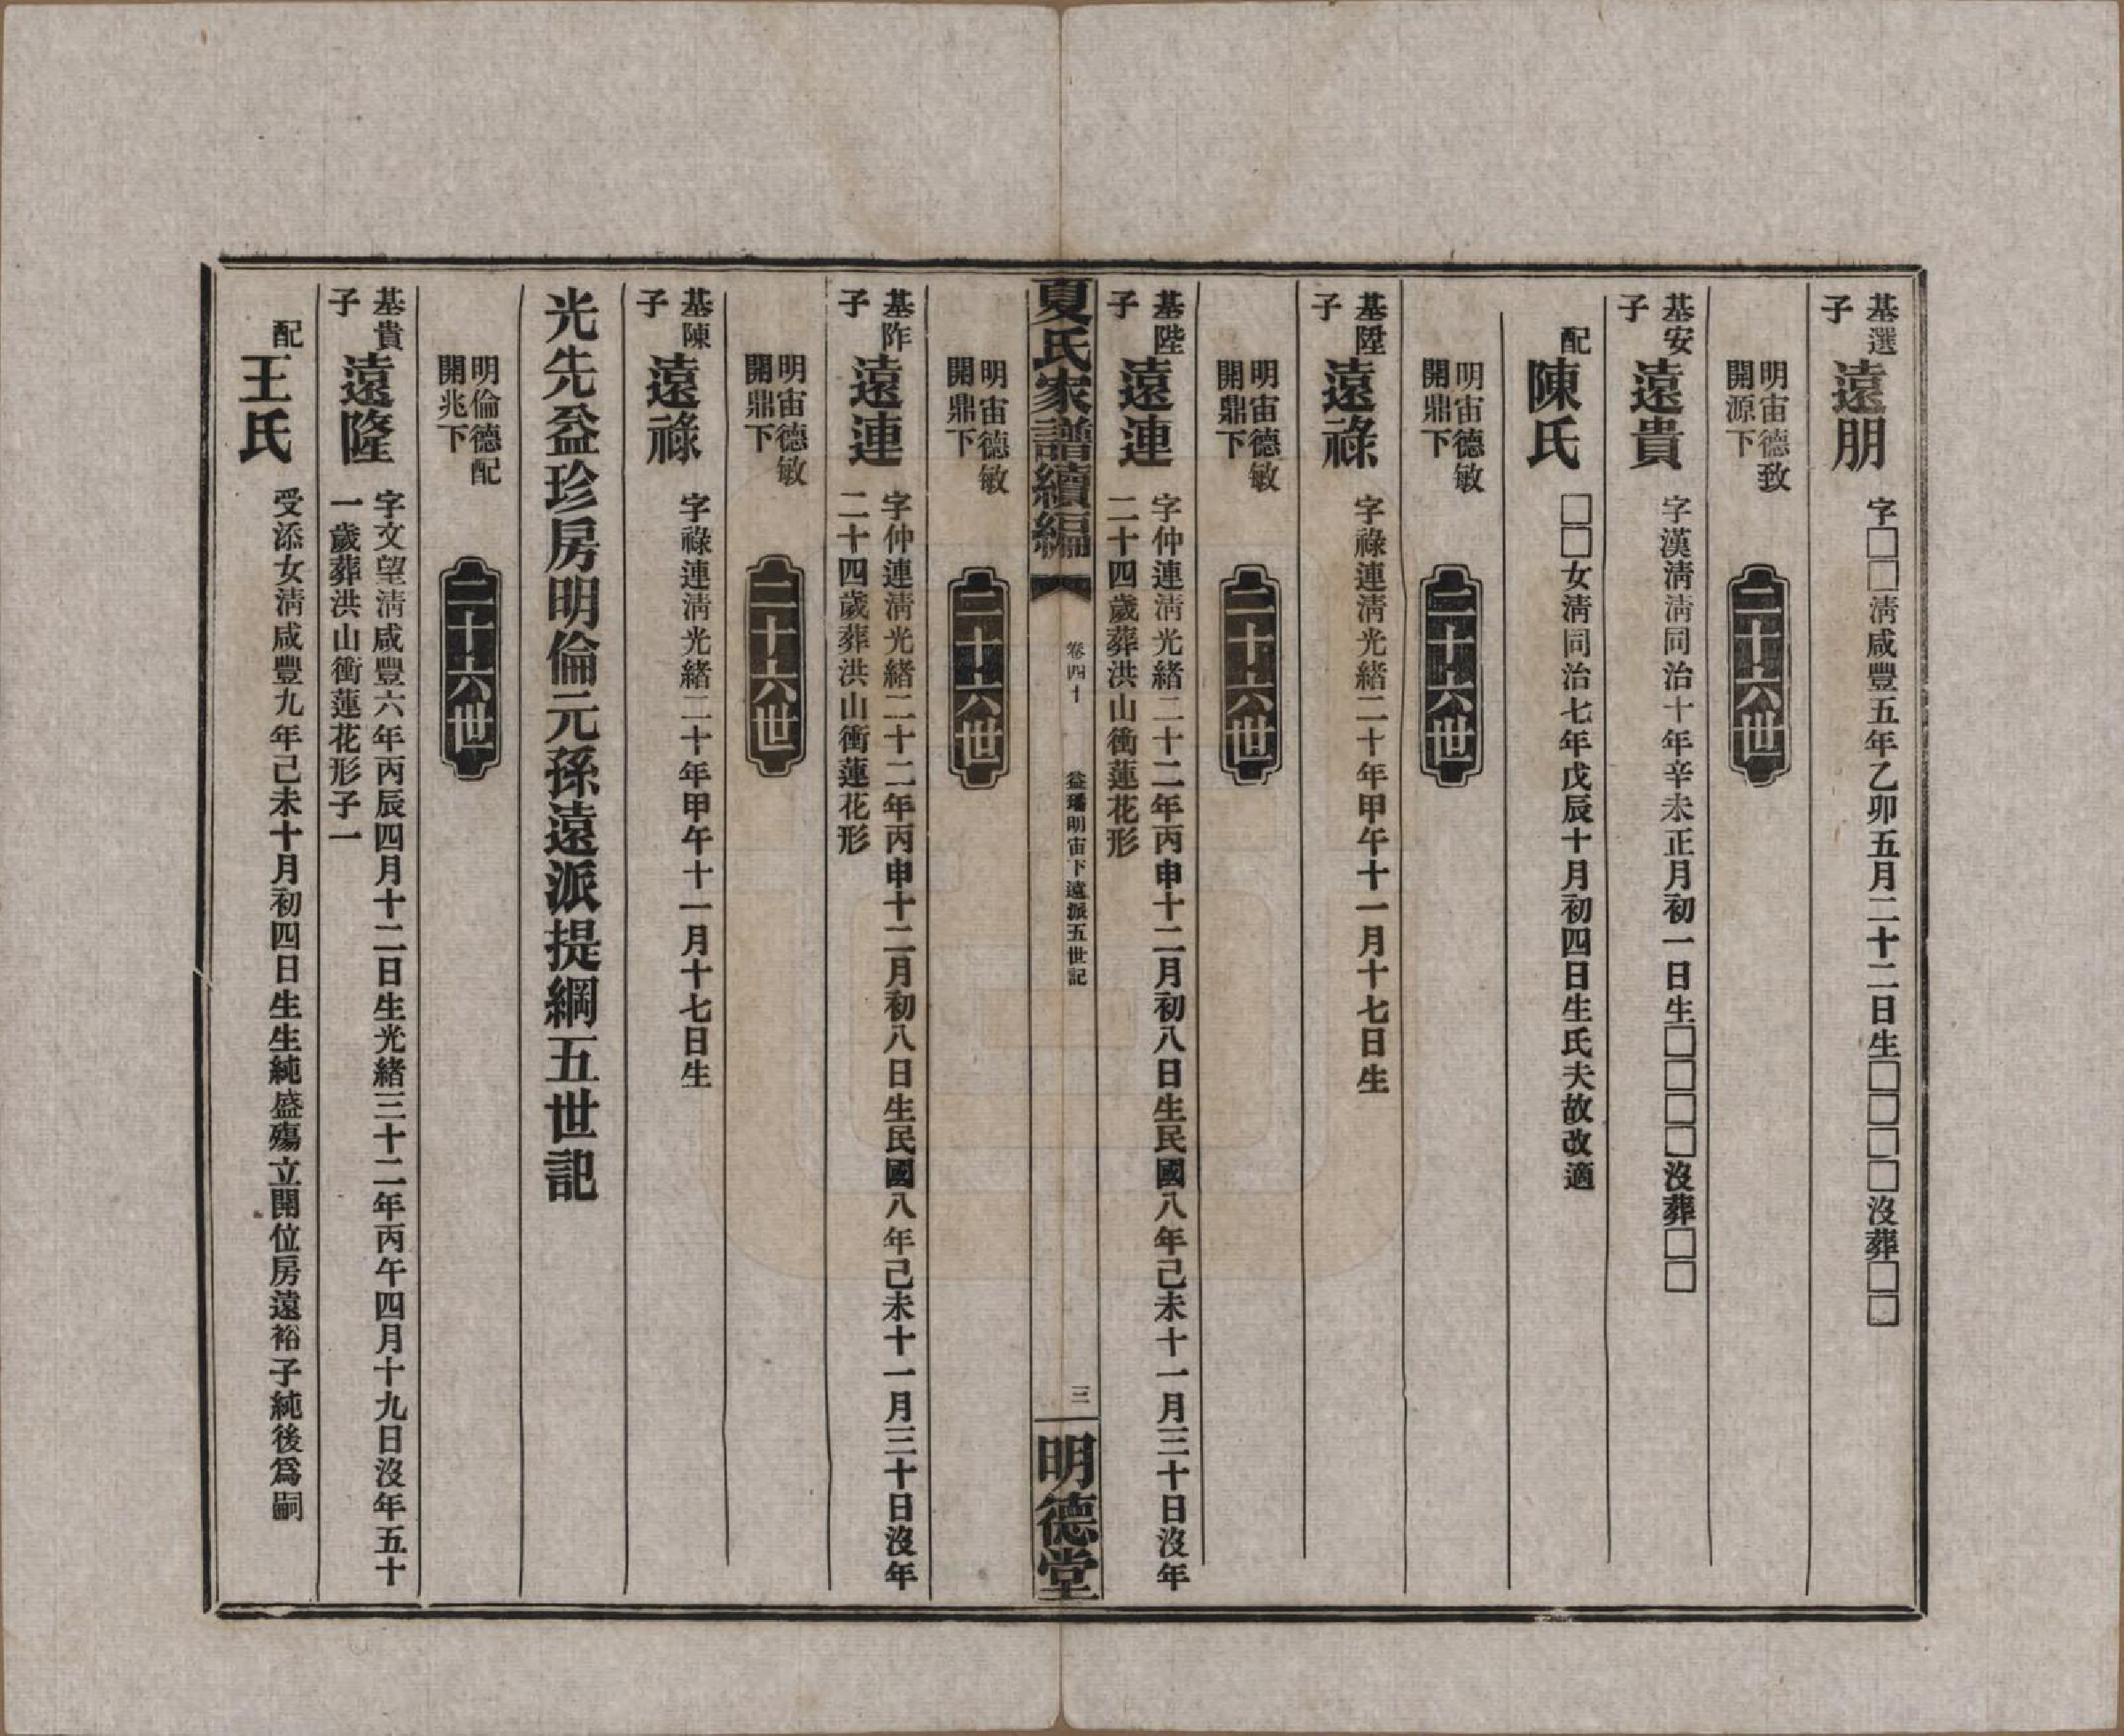 基選子 遠朋 字□□淸咸豐五年乙卯五月二十二日生□□□□沒葬□□
明宙德致
開源下
二十六世
基安子 遠貴 字漢淸淸同治十年辛未正月初一日生□□□□沒葬□□
配陳氏 □□女淸同治七年戊辰十月初四日生氏夫故改適
明宙德敏
開鼎下
二十六世
基陞子 遠祿 字祿連淸光緒二十年甲午十一月十七日生
明宙德敏
開鼎下
二十六世
基陛子 遠連 字仲連淸光緒二十二年丙申十二月初八日生民國八年己未十一月三十日沒年
二十四歲葬洪山衝蓮花形
夏氏家譜續編
卷四十
益璠明宙下遠派五世記
三
明德堂
明宙德敏
開鼎下
二十六世
基阼子 遠連 字仲連淸光緒二十二年丙申十二月初八日生民國八年己未十一月三十日沒年
二十四歲葬洪山衝蓮花形
明宙德敏
開鼎下
二十六世
基陳子 遠祿 字祿連淸光緒二十年甲午十一月十七日生
光先益珍房明倫元孫遠派提綱五世記
明倫德配
開兆下
二十六世
基貴子 遠隆 字文望淸咸豐六年丙辰四月十二日生光緒三十二年丙午四月十九日沒年五十
一歲葬洪山衝蓮花形子一
配王氏 受添女淸咸豐九年己未十月初四日生生純盛殤立開位房遠裕子純後爲嗣